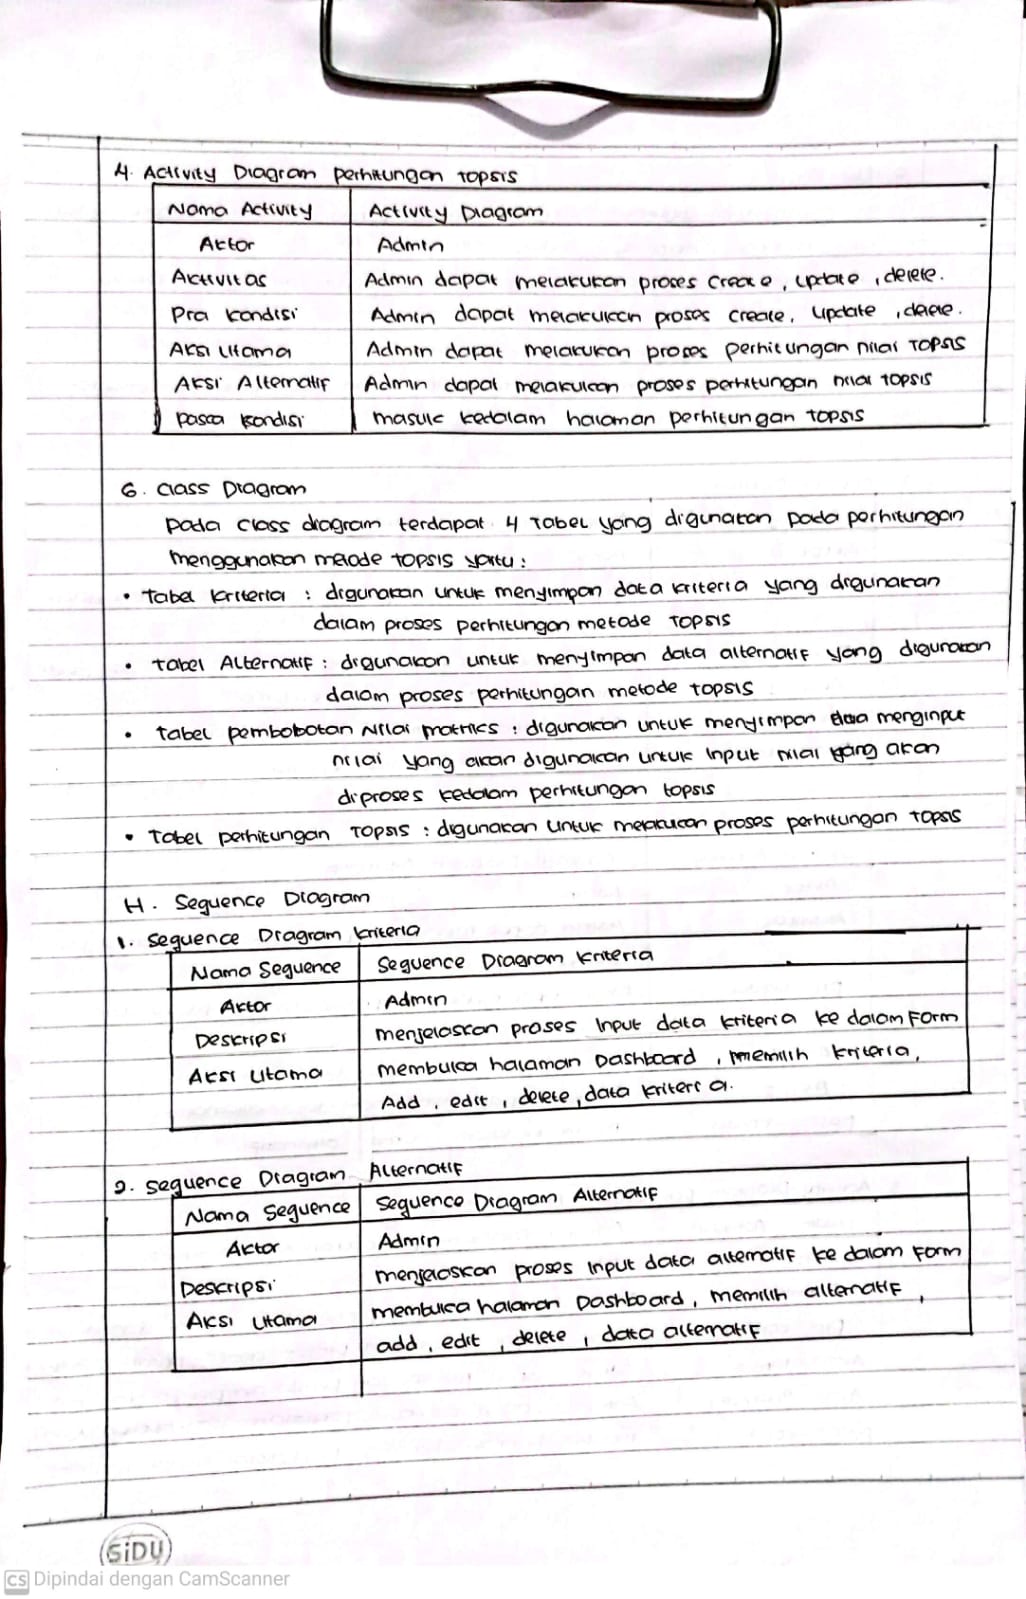 4. Activity Diagram perhitungan TOPSIS
Nama Activity Activity Diagram
Aktor Admin
Aktivitas Admin dapat melakukan proses create, update, delete.
Pra kondisi Admin dapat melakukan proses create, update, delete.
Aksi Utama Admin dapat melakukan proses perhitungan nilai TOPSIS
Aksi Alternatif Admin dapat melakukan proses perhitungan nilai TOPSIS
Pasca kondisi masuk kedalam halaman perhitungan TOPSIS
G. Class Diagram
Pada class diagram terdapat 4 Tabel yang digunakan pada perhitungan
menggunakan metode TOPSIS yaitu:
• Tabel Kriteria : digunakan untuk menyimpan data kriteria yang digunakan
dalam proses perhitungan metode TOPSIS
• Tabel Alternatif : digunakan untuk menyimpan data alternatif yang digunakan
dalam proses perhitungan metode TOPSIS
• Tabel pembobotan Nilai matriks : digunakan untuk menyimpan menginput
nilai yang akan digunakan untuk input nilai yang akan
diproses kedalam perhitungan topsis
• Tabel perhitungan TOPSIS : digunakan untuk melakukan proses perhitungan TOPSIS
H. Sequence Diagram
1. Sequence Diagram Kriteria
Nama Sequence Sequence Diagram Kriteria
Aktor Admin
Deskripsi menjelaskan proses input data kriteria ke dalam Form
Aksi Utama membuka halaman Dashboard, memilih kriteria,
Add, edit, delete, data kriteria.
2. Sequence Diagram Alternatif
Nama Sequence Sequence Diagram Alternatif
Aktor Admin
Deskripsi menjelaskan proses input data alternatif ke dalam Form
Aksi Utama membuka halaman Dashboard, memilih alternatif,
add, edit, delete, data alternatif
SiDU
CS Dipindai dengan CamScanner